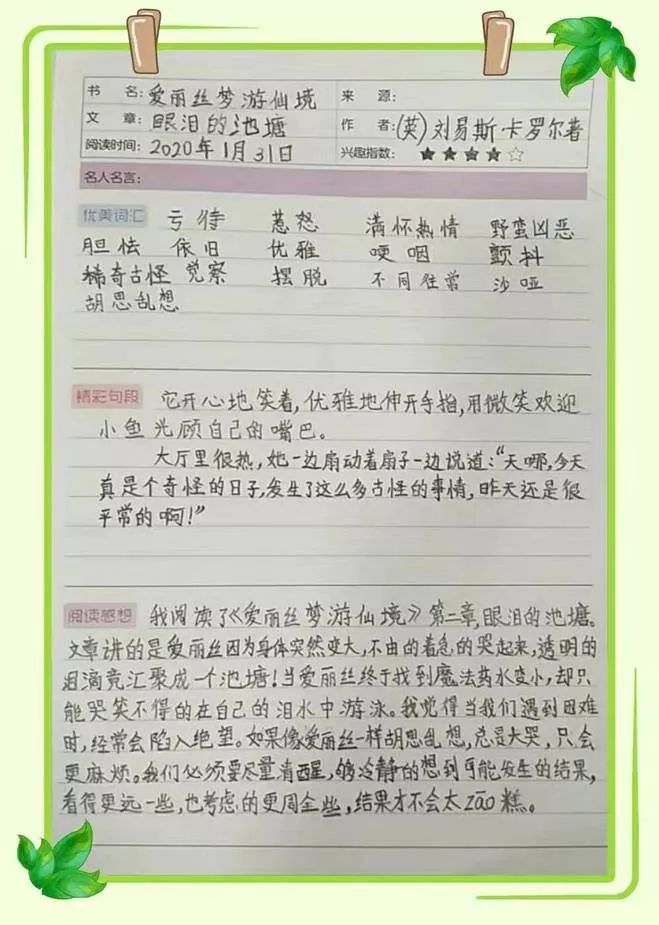 书 名：爱丽丝梦游仙境 来 源：
文 章：眼泪的池塘 作 者：(英)刘易斯·卡罗尔著
阅读时间：2020年1月31日 兴趣指数：★★★★☆
名人名言：
优美词汇 亏待 惹怒 满怀热情 野蛮凶恶
胆怯 依旧 优雅 哽咽 颤抖
稀奇古怪 觉察 摆脱 不同往常 沙哑
胡思乱想
精彩句段 它开心地笑着，优雅地伸开手指，用微笑欢迎
小鱼光顾自己的嘴巴。
大厅里很热，她一边扇动着扇子一边说道：“天哪，今天
真是个奇怪的日子，发生了这么多古怪的事情，昨天还是很
平常的啊！”
阅读感想 我阅读了《爱丽丝梦游仙境》第二章，眼泪的池塘。
文章讲的是爱丽丝因为身体突然变大，不由的着急的哭起来，透明的
泪滴竟汇聚成一个池塘！当爱丽丝终于找到魔法药水变小，却只
能哭笑不得的在自己的泪水中游泳。我觉得当我们遇到困难
时，经常会陷入绝望。如果像爱丽丝一样胡思乱想，总是大哭，只会
更麻烦。我们必须要尽量清醒，够冷静的想到可能发生的结果，
看得更远一些，也考虑的更周全些，结果才不会太zāo糕。